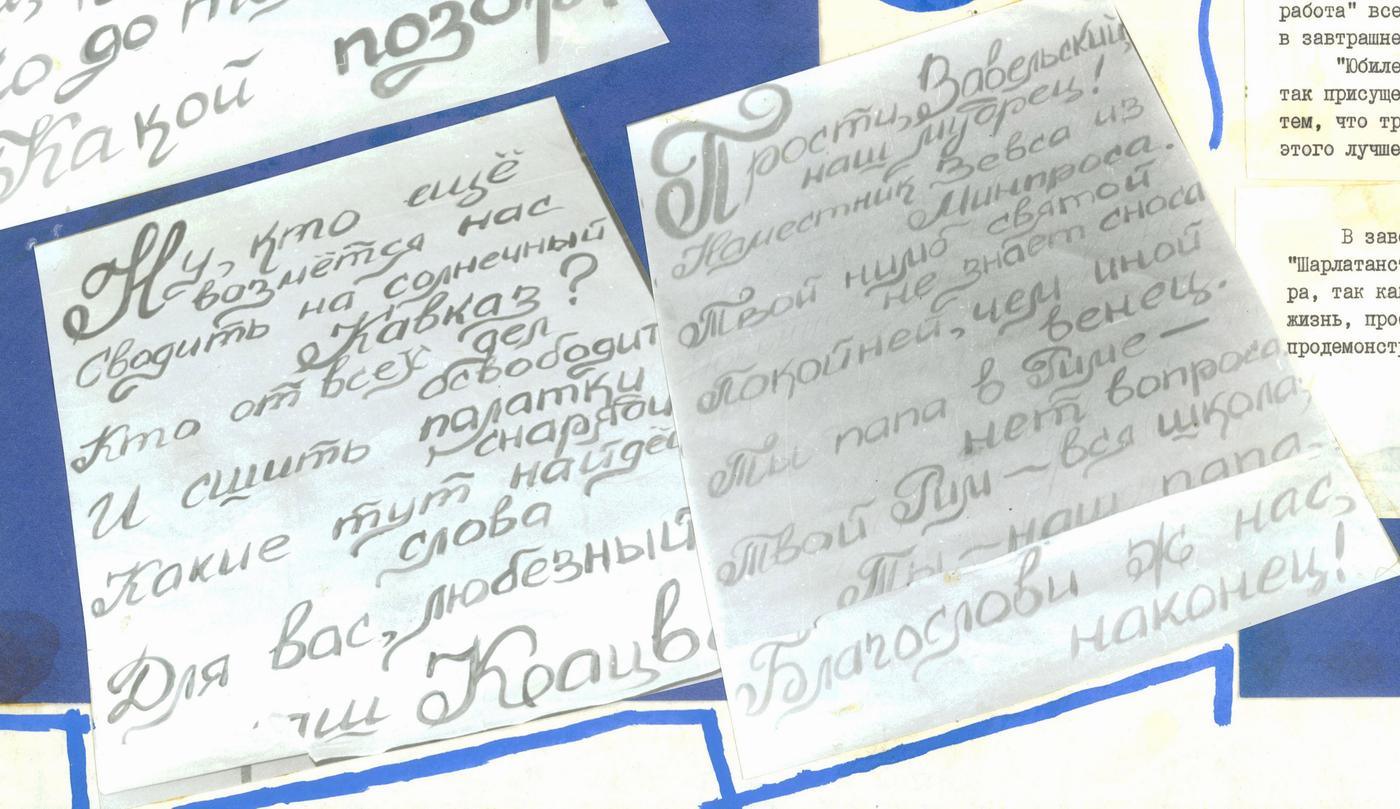 до
Какой позор!
Ну, кто ещё
возмётся нас
Сводить на солнечный
Кавказ?
Кто от всех дел
освободит
И сшить палатки
снарядит
Какие тут найдё
слова
Для вас, любезный
наш Крацв
Прости, Вавельский,
наш мудрец!
Наместник Зевса из
Минпроса.
Твой нимб святой
не знает сноса
Покойней, чем иной
венец.
Ты папа в Риме —
нет вопроса
Твой Рим — вся школа;
Ты — наш папа-
Благослови ж нас,
наконец!
работа" все
в завтрашне
"Юбиле
так присуще
тем, что тр
этого лучше
В заве
"Шарлатанс
ра, так ка
жизнь, про
продемонст